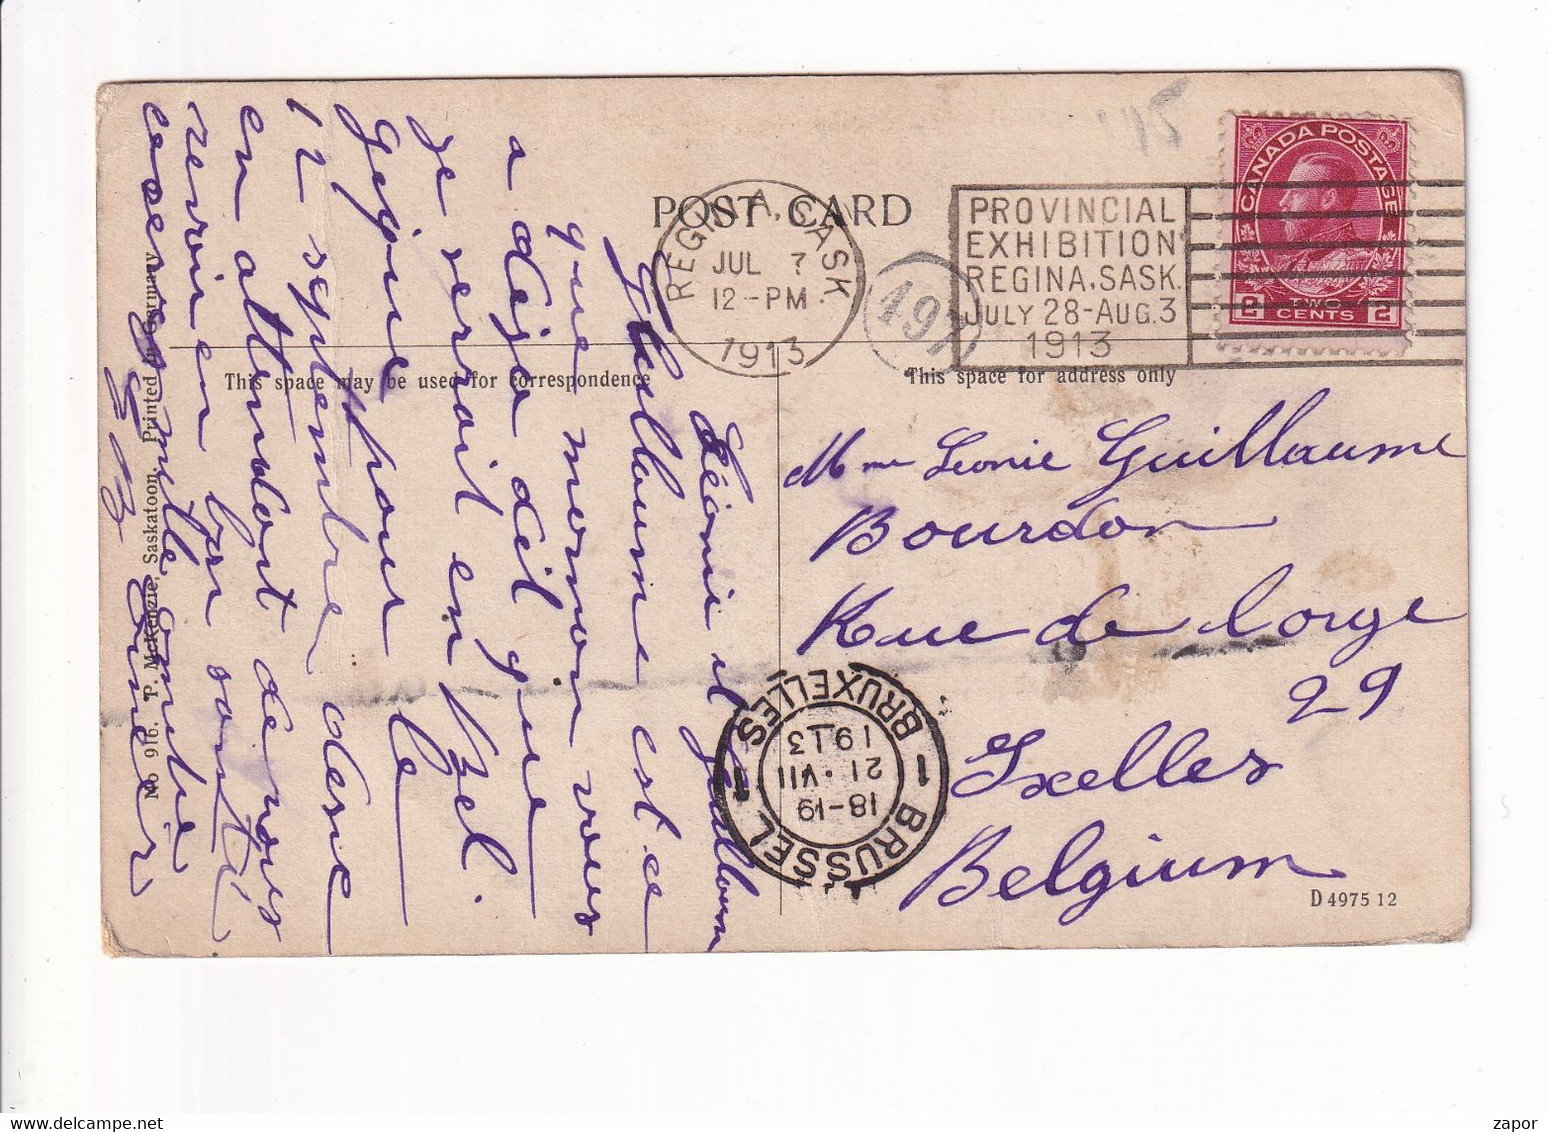 POST CARD
REGINA, SASK
JUL 7
12-PM
1913
PROVINCIAL
EXHIBITION
REGINA, SASK.
JULY 28-AUG. 3
1913
CANADA POSTAGE
2 TWO CENTS 2
497
This space may be used for correspondence
This space for address only
Mme Leonie Guillaume
Bourdon
Rue de lorge
29
Ixelles
Belgium
BRUSSEL 1
18-19
21·VII
1913
1 BRUXELLES
D 4975 12
No 916. T. P. McKenzie, Saskatoon, Printed in Germany
Léonie et Guillaum
Guillaume est ce
que momon vous
a deja dit que
je serait en Bel
gique pour le
12 septembre
en attendant de vous
revoir en bon santé
zapor